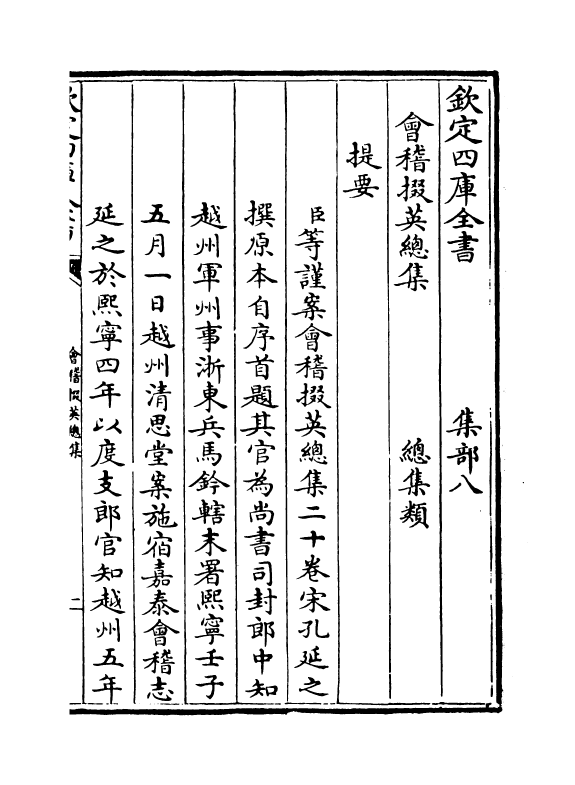 欽定四庫全書　集部八
會稽掇英總集　總集類
提要
臣等謹案會稽掇英總集二十卷宋孔延之
撰原本自序首題其官為尚書司封郎中知
越州軍州事浙東兵馬鈐轄末署熙寧壬子
五月一日越州清思堂案施宿嘉泰會稽志
延之於熙寧四年以度支郎官知越州五年
會稽掇英總集